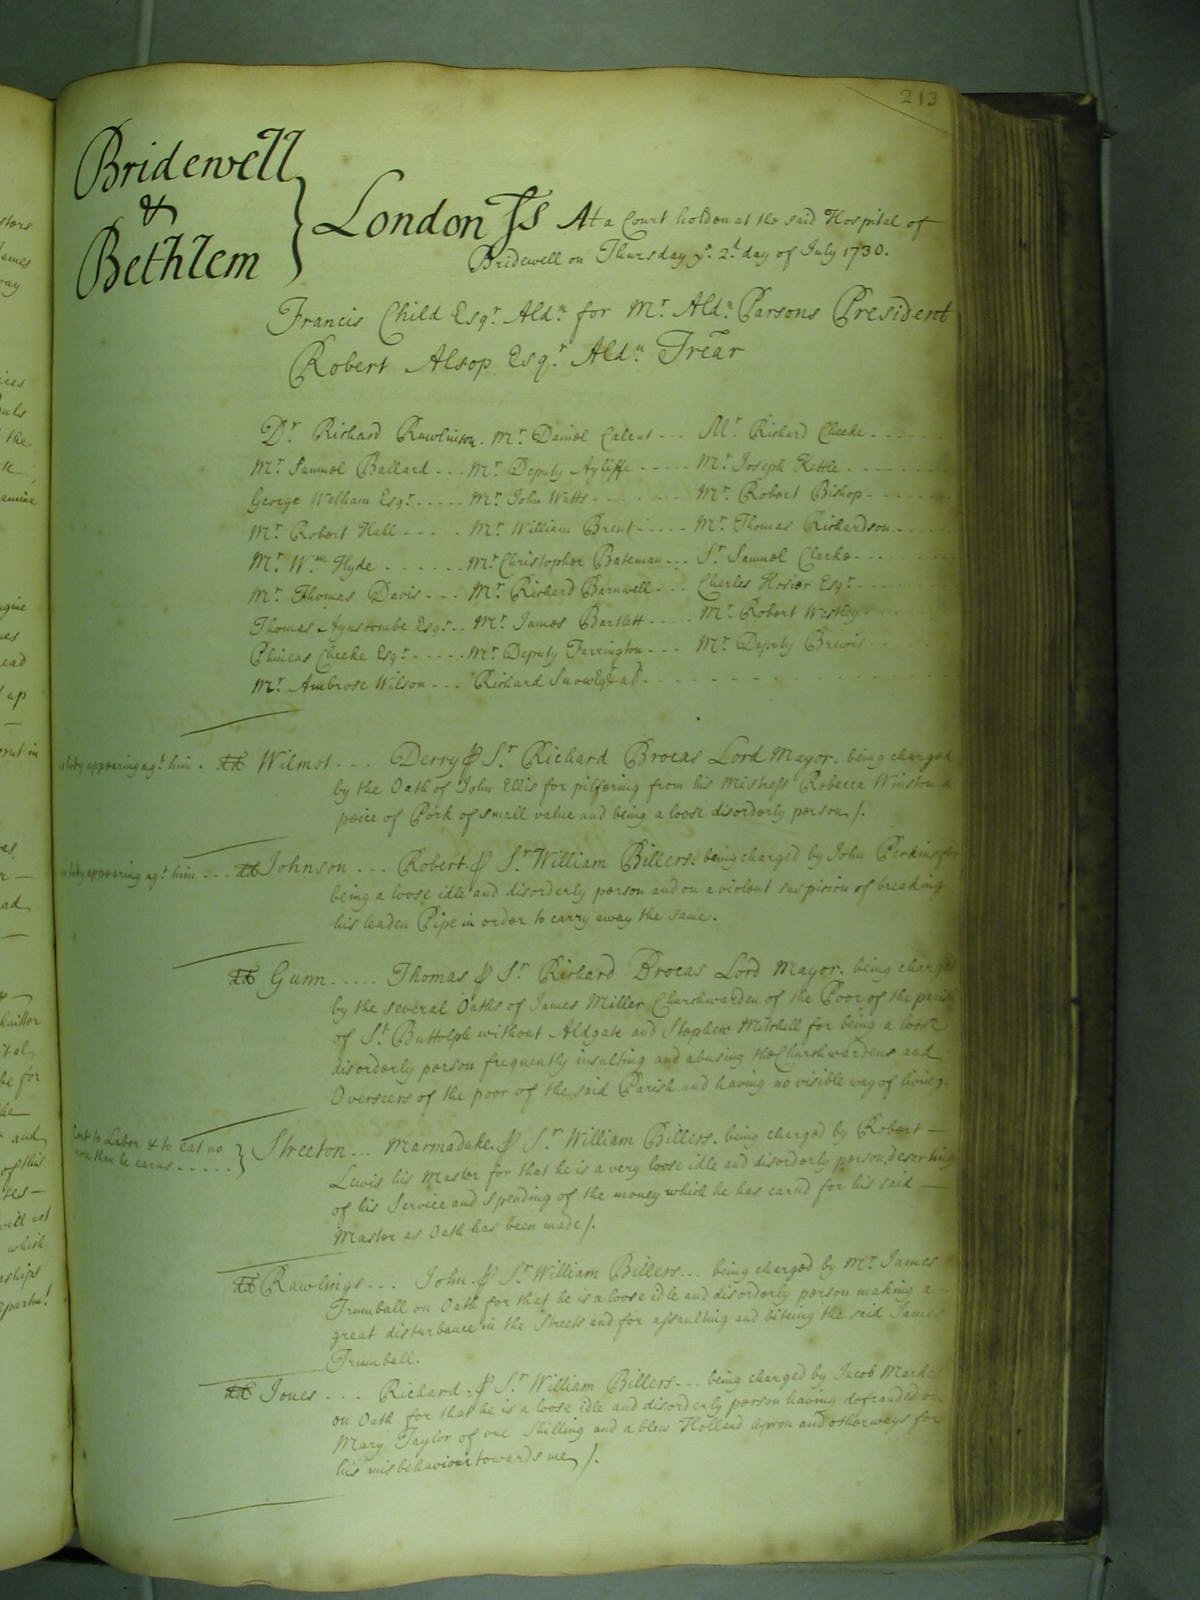 213
Bridewell
&
Bethlem
London Ss At a Court holden at the said Hospital of
Bridewell on Thursday ye. 2d. day of July 1730.
Francis Child Esqr. Aldn. for Mr. Aldn. Parsons President
Robert Alsop Esqr. Aldn. Trear
Dr. Richard Rawlinson. Mr. Daniel Calent --- Mr. Richard Cheeke ------
Mr. Samuel Ballard --- Mr. Deputy Ayliffe ----- Mr. Joseph Kettle -------
George Welham Esqr. ----- Mr. John Watts ------ Mr. Robert Bishop -------
Mr. Robert Hall ----- Mr. William Brent ----- Mr. Thomas Richardson -----
Mr. Wm. Hyde ------ Mr. Christopher Bateman --- Sr. Samuel Clerke ------
Mr. Thomas Davis --- Mr. Richard Barnwell --- Charles Hosier Esqr. ------
Thomas Aynscombe Esqr. -- Mr. James Bartlett ----- Mr. Robert Westley -----
Phineas Cheeke Esqr. ----- Mr. Deputy Farrington --- Mr. Deputy Brewis ------
Mr. Ambrose Wilson --- Richard Snow Esq
body appearing agt. him. Wilmot --- Derry p Sr. Richard Brocas Lord Mayor. being charged
by the Oath of John Ellis for pilfering from his Mistress Rebecca Winston a
peice of Pork of small value and being a loose disorderly person /.
body appearing agt. him --- Johnson --- Robert. p Sr. William Billers. being charged by John Perkins for
being a loose idle and disorderly person and on a violent suspicion of breaking
his leaden Pipe in order to carry away the same.
Gunn ----- Thomas p Sr. Richard Brocas Lord Mayor. being charged
by the several Oaths of James Miller Churchwarden of the Poor of the parish
of St. Buttolph without Aldgate and Stephen Mitchell for being a loose
disorderly person frequently insulting and abusing the Churchwardens and
Overseers of the poor of the said Parish and having no visible way of living.
Cont to Labor & to eat no
more then he earns -----
} Streeton --- Marmaduke. p Sr. William Billers. being charged by Robert —
Lewis his Master for that he is a very loose idle and disorderly person, deserting
of his Service and spending of the money which he has earnd for his said —
Master as Oath has been made /.
Rawlings --- John. p Sr. William Billers --- being charged by Mr. James
Trumball on Oath for that he is a loose idle and disorderly person making a
great disturbance in the Streets and for assaulting and biteing the said James
Trumball.
Jones --- Richard. p Sr. William Billers --- being charged by Jacob Marks
on Oath for that he is a loose idle and disorderly person having defrauded one
Mary Taylor of one Shilling and a blew Holland Apron and otherways for
his misbehaviour towards me /.